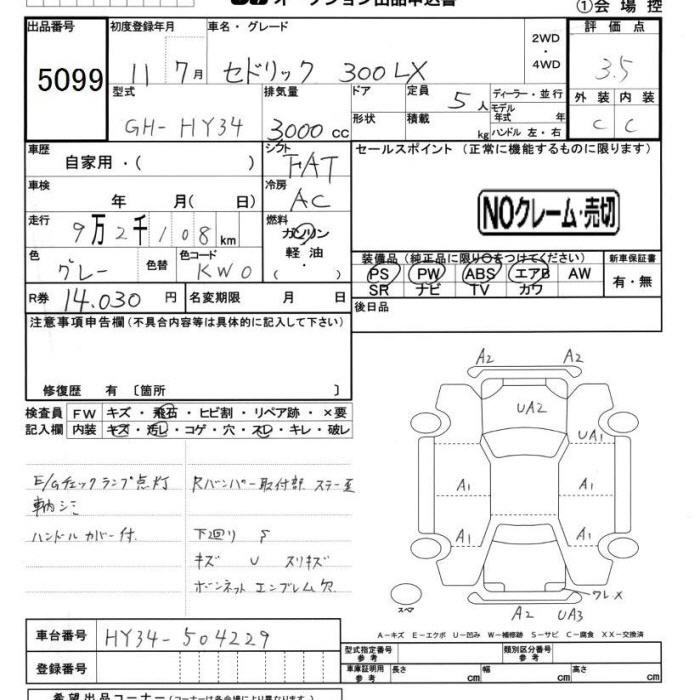 オークション出品申込書
①会場控
出品番号 初度登録年月 車名・グレード 2WD・4WD 評価点
5099 11 7月 セドリック 300LX 3.5
型式 排気量 ドア 定員 5人 ディーラー・並行 外装 内装
モデル年式 年
GH-HY34 3000cc 形状 積載 kg ハンドル 左・右 C C
車歴 自家用・( ) シフト FAT セールスポイント (正常に機能するものに限ります)
車検 年 月( 日) 冷房 AC
NOクレーム・売切
走行 9万2千108km 燃料 ガソリン
軽油・( )
色 グレー 色替 色コード KW0
装備品(純正品に限り○をつけてください) 新車保証書
PS PW ABS エアB AW 有・無
SR ナビ TV カワ
R券 14.030円 名変期限 月 日 後日品
注意事項申告欄(不具合内容等は具体的に記入して下さい)
修復歴 有 〔箇所 〕
検査員 FW キズ・飛石・ヒビ割・リペア跡・×要
記入欄 内装 キズ・汚レ・コゲ・穴・スレ・キレ・破レ
E/Gチェックランプ点灯
車内シミ
ハンドルカバー付
Rバンパー取付部 ステー歪
下廻り S
キズ U スリキズ
ボンネットエンブレム欠
A2 A2
UA2
UA1
A1 A1
A1 A1
ワレX
スペア
A2 UA3
A-キズ E-エクボ U-凹み W-補修跡 S-サビ C-腐食 XX-交換済
車台番号 HY34-504229
登録番号
型式指定番号 参考 類別区分番号 参考
車庫証明用 参考 長さ cm 幅 cm 高さ cm
希望出品コーナー(コーナーは各会場により異なります)